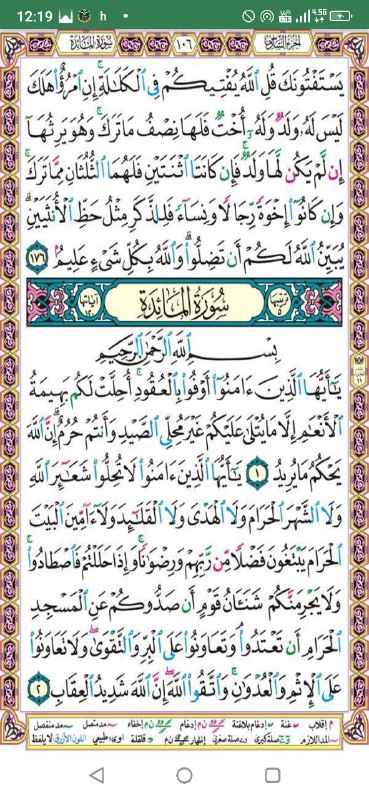 12:19 h • 4.5G
الجزء السادس ١٠٦ سورة المائدة
يَسْتَفْتُونَكَ قُلِ ٱللَّهُ يُفْتِيكُمْ فِى ٱلْكَلَٰلَةِ إِنِ ٱمْرُؤٌا۟ هَلَكَ
لَيْسَ لَهُۥ وَلَدٌ وَلَهُۥٓ أُخْتٌ فَلَهَا نِصْفُ مَا تَرَكَ وَهُوَ يَرِثُهَآ
إِن لَّمْ يَكُن لَّهَا وَلَدٌ فَإِن كَانَتَا ٱثْنَتَيْنِ فَلَهُمَا ٱلثُّلُثَانِ مِمَّا تَرَكَ
وَإِن كَانُوٓا۟ إِخْوَةً رِّجَالًا وَنِسَآءً فَلِلذَّكَرِ مِثْلُ حَظِّ ٱلْأُنثَيَيْنِ
يُبَيِّنُ ٱللَّهُ لَكُمْ أَن تَضِلُّوا۟ وَٱللَّهُ بِكُلِّ شَىْءٍ عَلِيمٌۢ ١٧٦
ترتيبها ٥ سُورَةُ المَائِدَةِ آياتها ١٢٠
بِسْمِ ٱللَّهِ ٱلرَّحْمَٰنِ ٱلرَّحِيمِ
يَٰٓأَيُّهَا ٱلَّذِينَ ءَامَنُوٓا۟ أَوْفُوا۟ بِٱلْعُقُودِ أُحِلَّتْ لَكُم بَهِيمَةُ
ٱلْأَنْعَٰمِ إِلَّا مَا يُتْلَىٰ عَلَيْكُمْ غَيْرَ مُحِلِّى ٱلصَّيْدِ وَأَنتُمْ حُرُمٌ إِنَّ ٱللَّهَ
يَحْكُمُ مَا يُرِيدُ ١ يَٰٓأَيُّهَا ٱلَّذِينَ ءَامَنُوا۟ لَا تُحِلُّوا۟ شَعَٰٓئِرَ ٱللَّهِ
وَلَا ٱلشَّهْرَ ٱلْحَرَامَ وَلَا ٱلْهَدْىَ وَلَا ٱلْقَلَٰٓئِدَ وَلَآ ءَآمِّينَ ٱلْبَيْتَ
ٱلْحَرَامَ يَبْتَغُونَ فَضْلًا مِّن رَّبِّهِمْ وَرِضْوَٰنًا وَإِذَا حَلَلْتُمْ فَٱصْطَادُوا۟
وَلَا يَجْرِمَنَّكُمْ شَنَـَٔانُ قَوْمٍ أَن صَدُّوكُمْ عَنِ ٱلْمَسْجِدِ
ٱلْحَرَامِ أَن تَعْتَدُوا۟ وَتَعَاوَنُوا۟ عَلَى ٱلْبِرِّ وَٱلتَّقْوَىٰ وَلَا تَعَاوَنُوا۟
عَلَى ٱلْإِثْمِ وَٱلْعُدْوَٰنِ وَٱتَّقُوا۟ ٱللَّهَ إِنَّ ٱللَّهَ شَدِيدُ ٱلْعِقَابِ ٢
م إقلاب غنة إدغام بلاغنة ن م إدغام ن م إخفاء مد متصل مد منفصل
المد اللازم صلة كبرى صلة صغرى إظهار ن م قلقلة طبيعي اللون الأزرق لا يلفظ